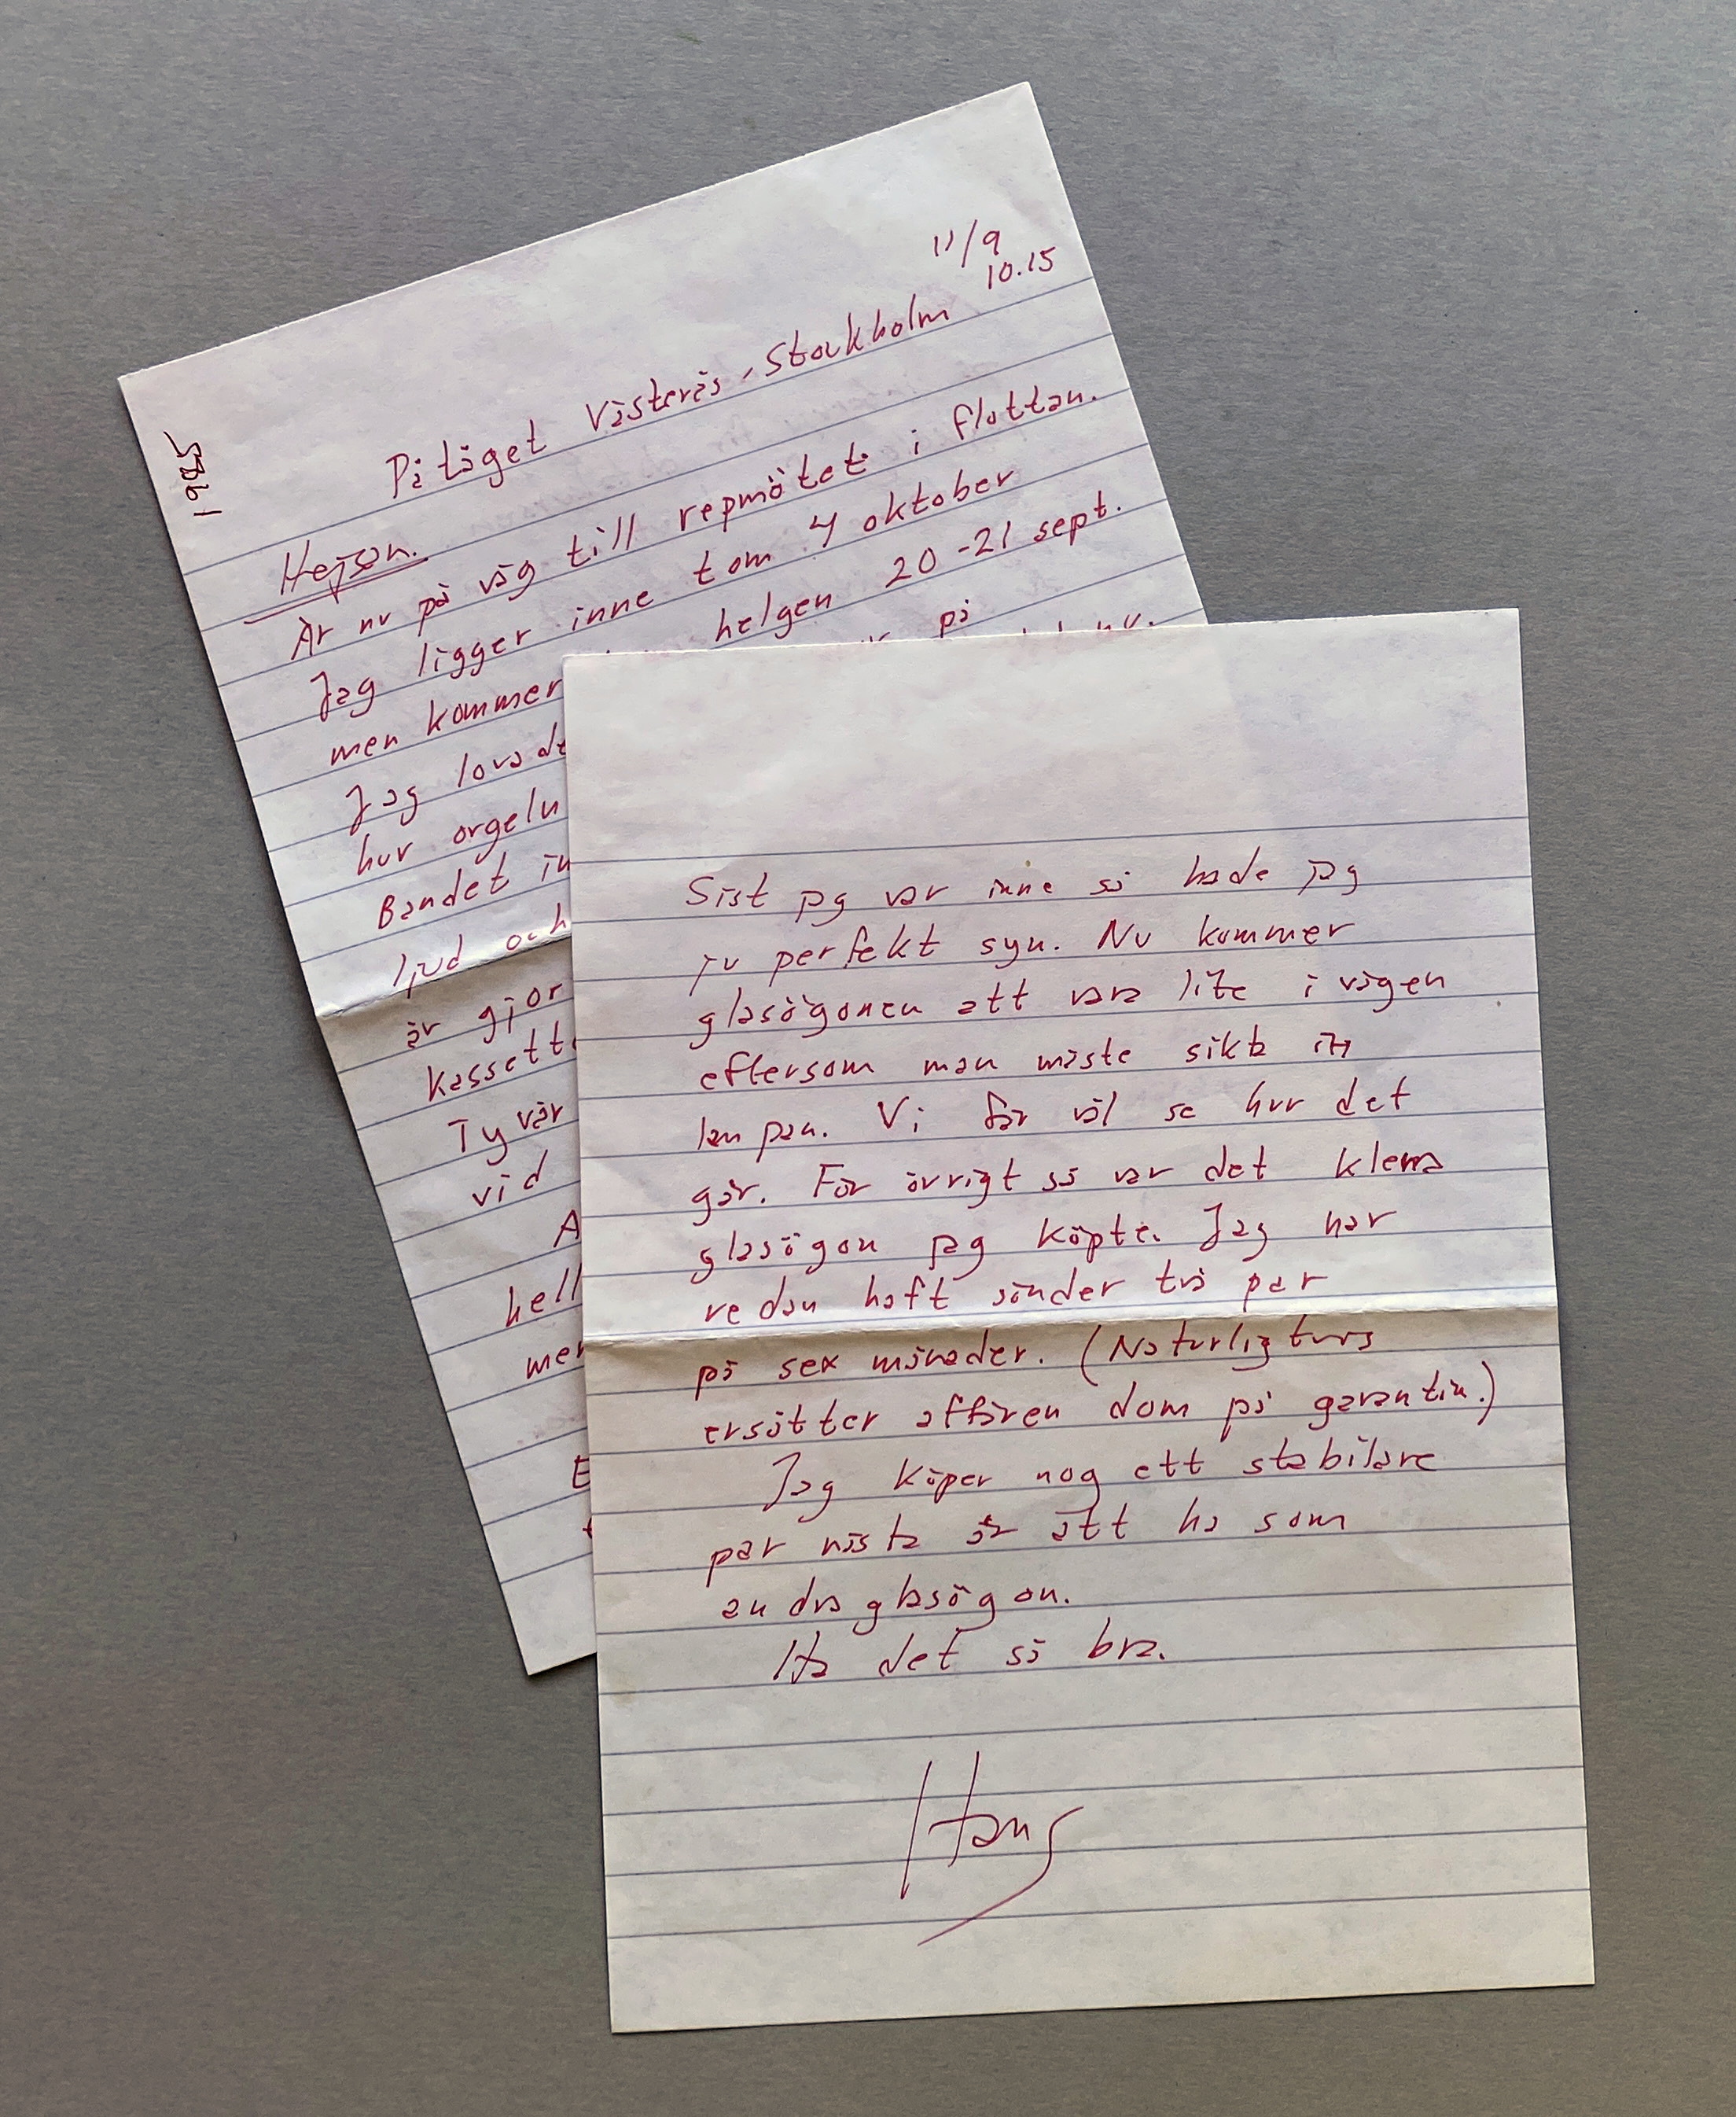 11/9
10.15
På tåget Västerås - Stockholm
1985
Hejsan.
Är nu på väg till repmötet i flottan.
Jag ligger inne tom 4 oktober
men kommer helgen 20-21 sept.
Jag lovade på
hur orgeln
Bandet in
ljud och
är gjor
kassett
Tyvär
vid
A
hell
mer
E
Sist jag var inne så hade jag
ju perfekt syn. Nu kommer
glasögonen att vara lite i vägen
eftersom man måste sikta in
lampan. Vi får väl se hur det
går. För övrigt så var det klena
glasögon jag köpte. Jag har
redan haft sönder två par
på sex månader. (Naturligtvis
ersätter affären dom på garantin.)
Jag köper nog ett stabilare
par nästa år att ha som
andra glasögon.
Ha det så bra.
Hans